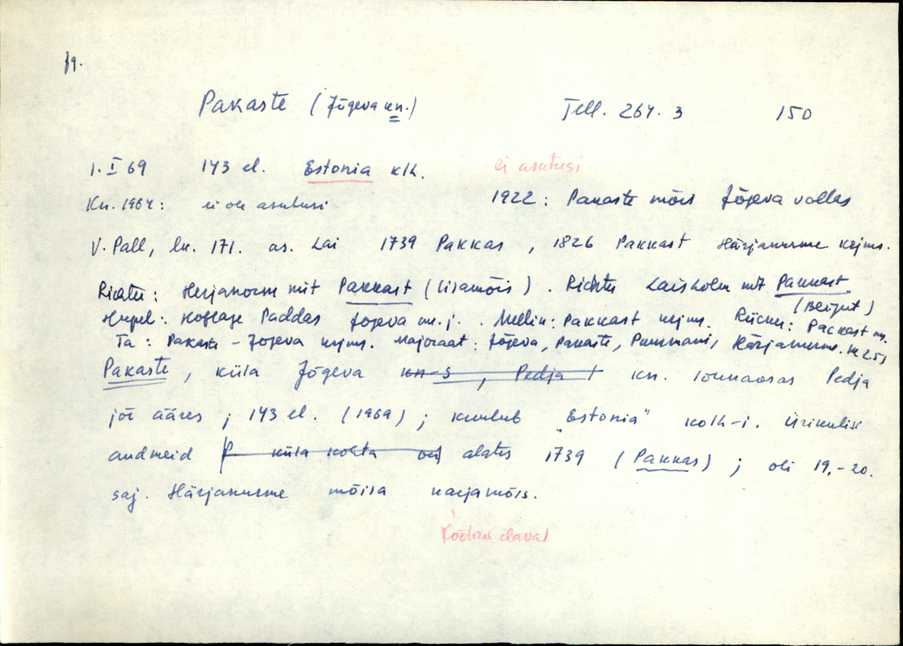 Jg.
Pakaste (Jõgeva kn.) Tell. 264. 3 150
1. I 69 143 el. Estonia klh. ei asutusi
Kn. 1964: ei ole asutusi 1922: Pakaste mõis Jõgeva vallas
V. Pall, lk. 171. as. Lai 1739 Pakkas, 1826 Pakkast Härjanurme krjms.
Richter: Herjanorm mit Pakkast (lisamõis). Richter Laisholm mit Pakkast
(Beigut)
Hupel: Hoflage Paddas Jõgeva m. j. Mellin: Pakkast krjms. Rücker: Packast m.
Ta: Pakaste - Jõgeva krjms. Majoraat: Jõgeva, Pakaste, Härjanurme.
Pakaste, küla Jõgeva kn-s, Pedja kn. lõunaosas Pedja
jõe ääres; 143 el. (1969); kuulub "Estonia" kolh-i. Ürikulik
andmeid P küla kohta on alates 1739 (Pakkas); oli 19.-20.
saj. Härjanurme mõisa karjamõis.